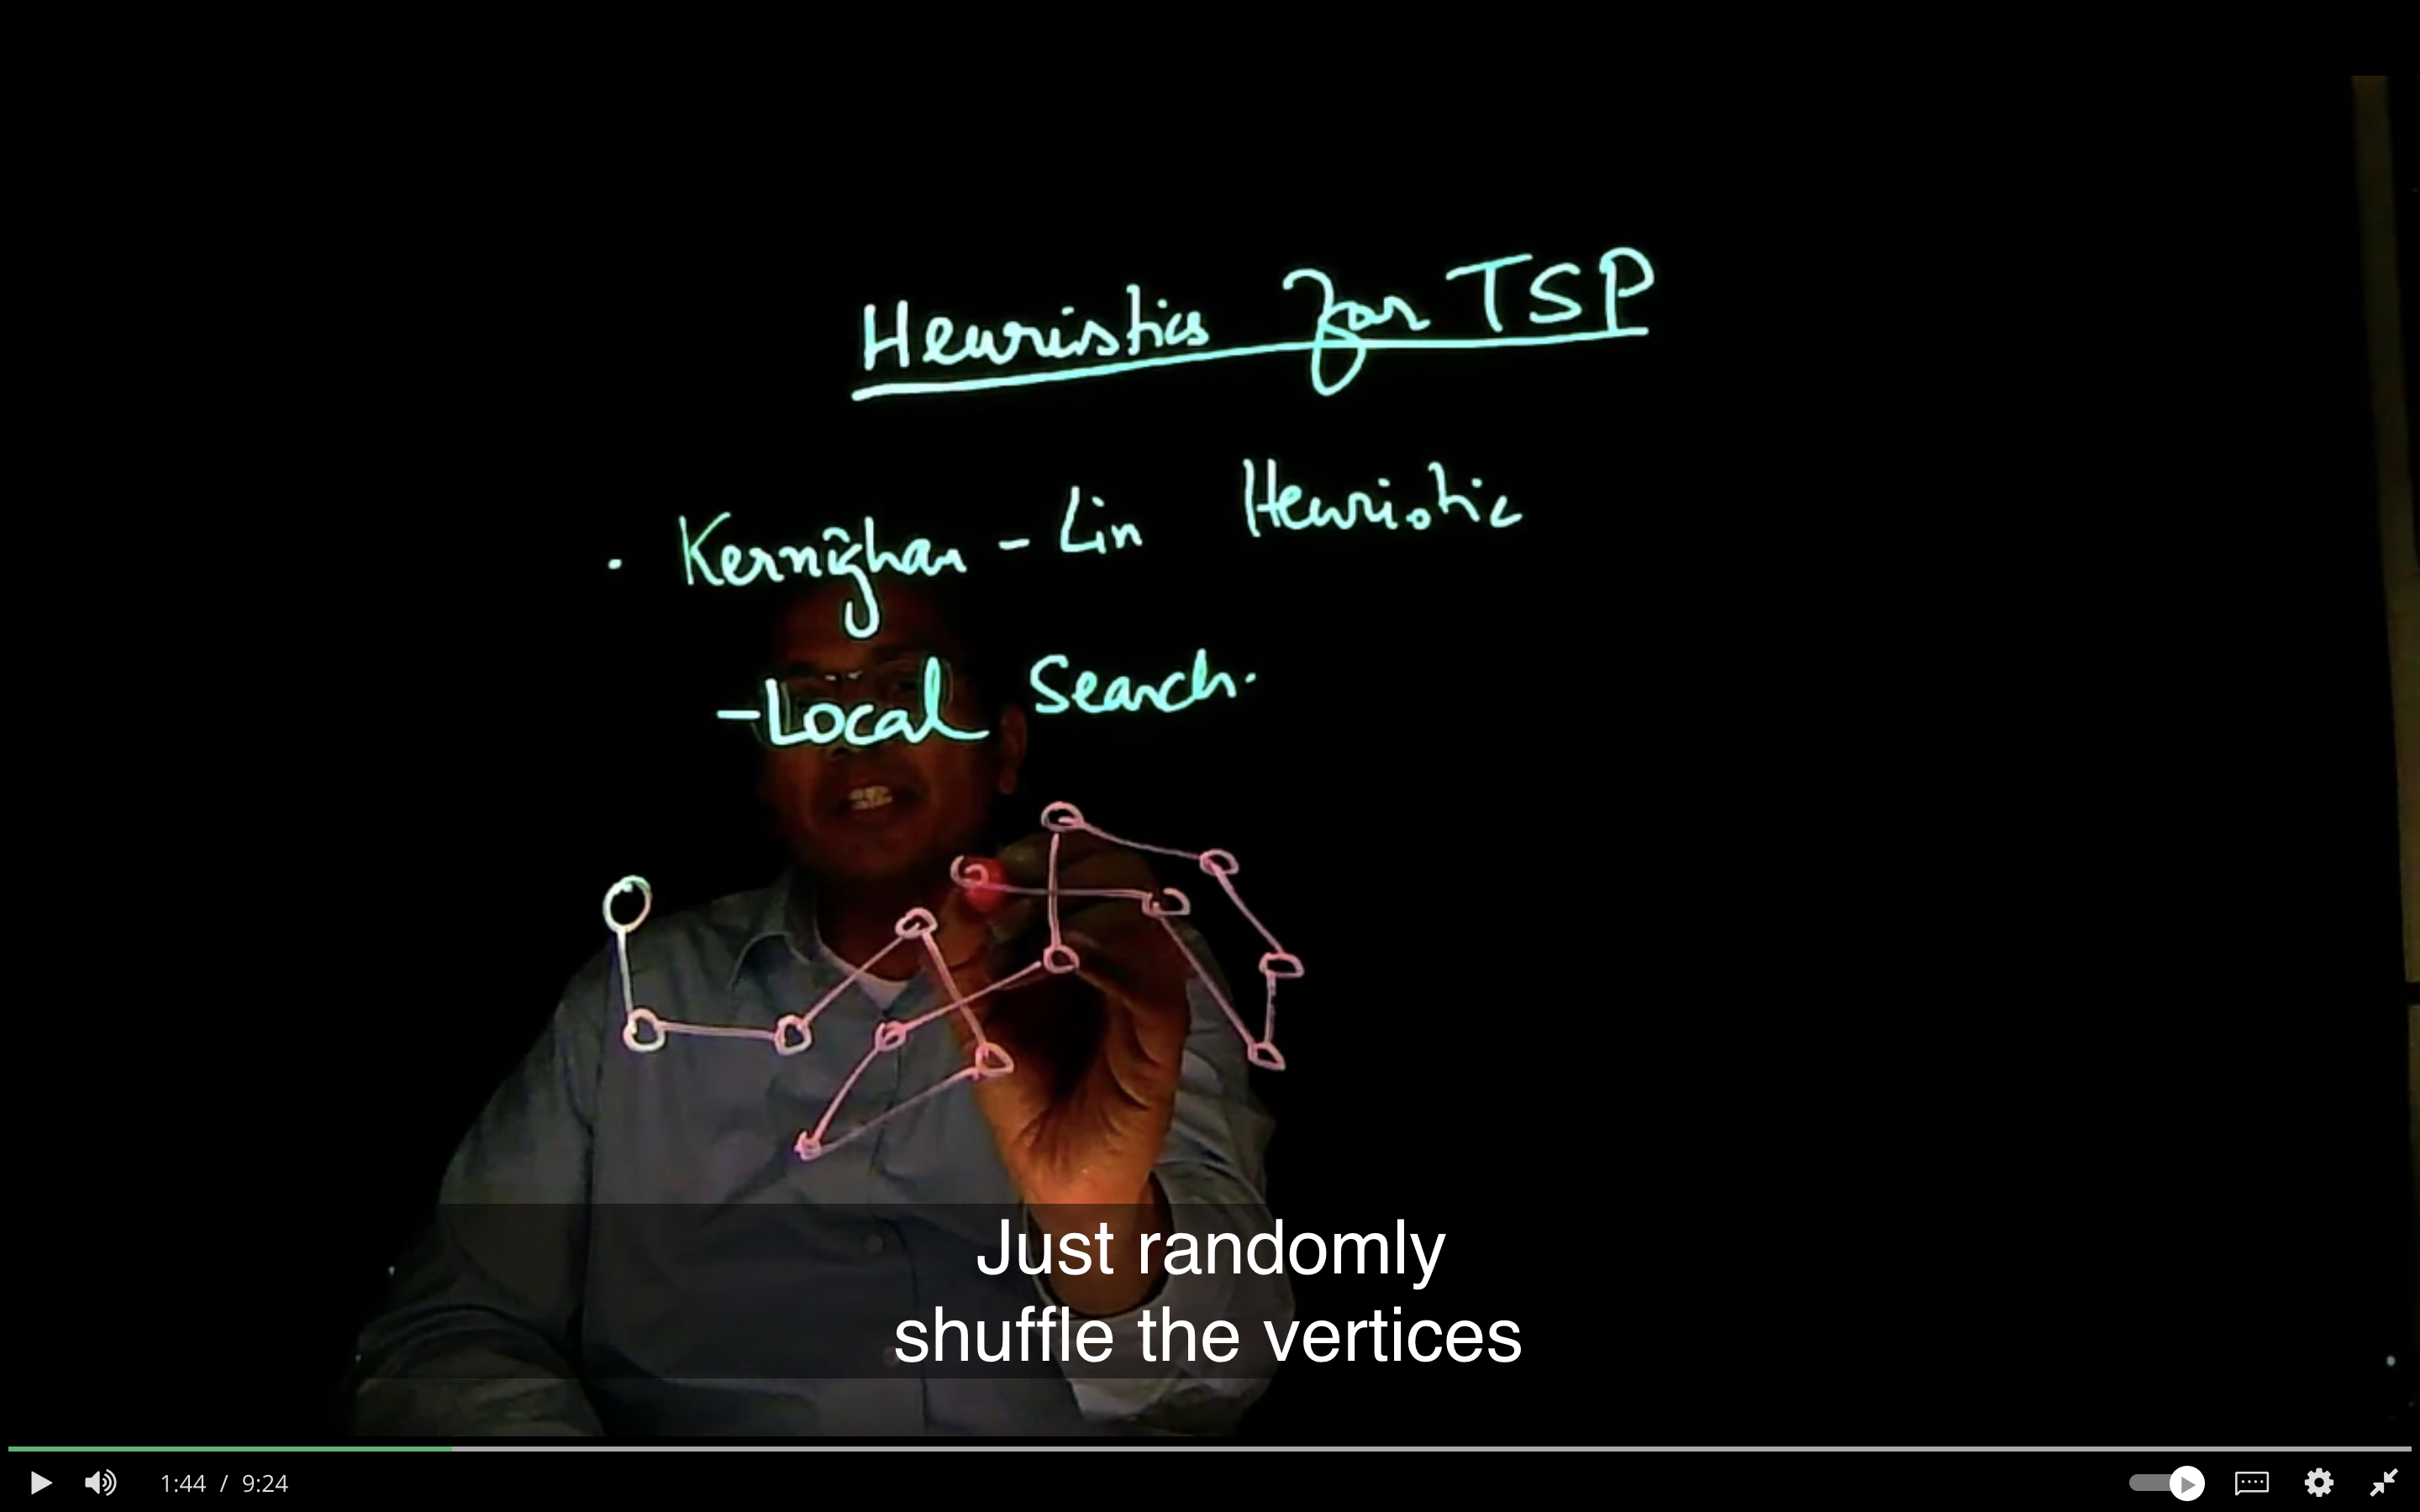 Heuristics for TSP
· Kernighan - Lin Heuristic
- Local Search.
Just randomly
shuffle the vertices
1:44 / 9:24